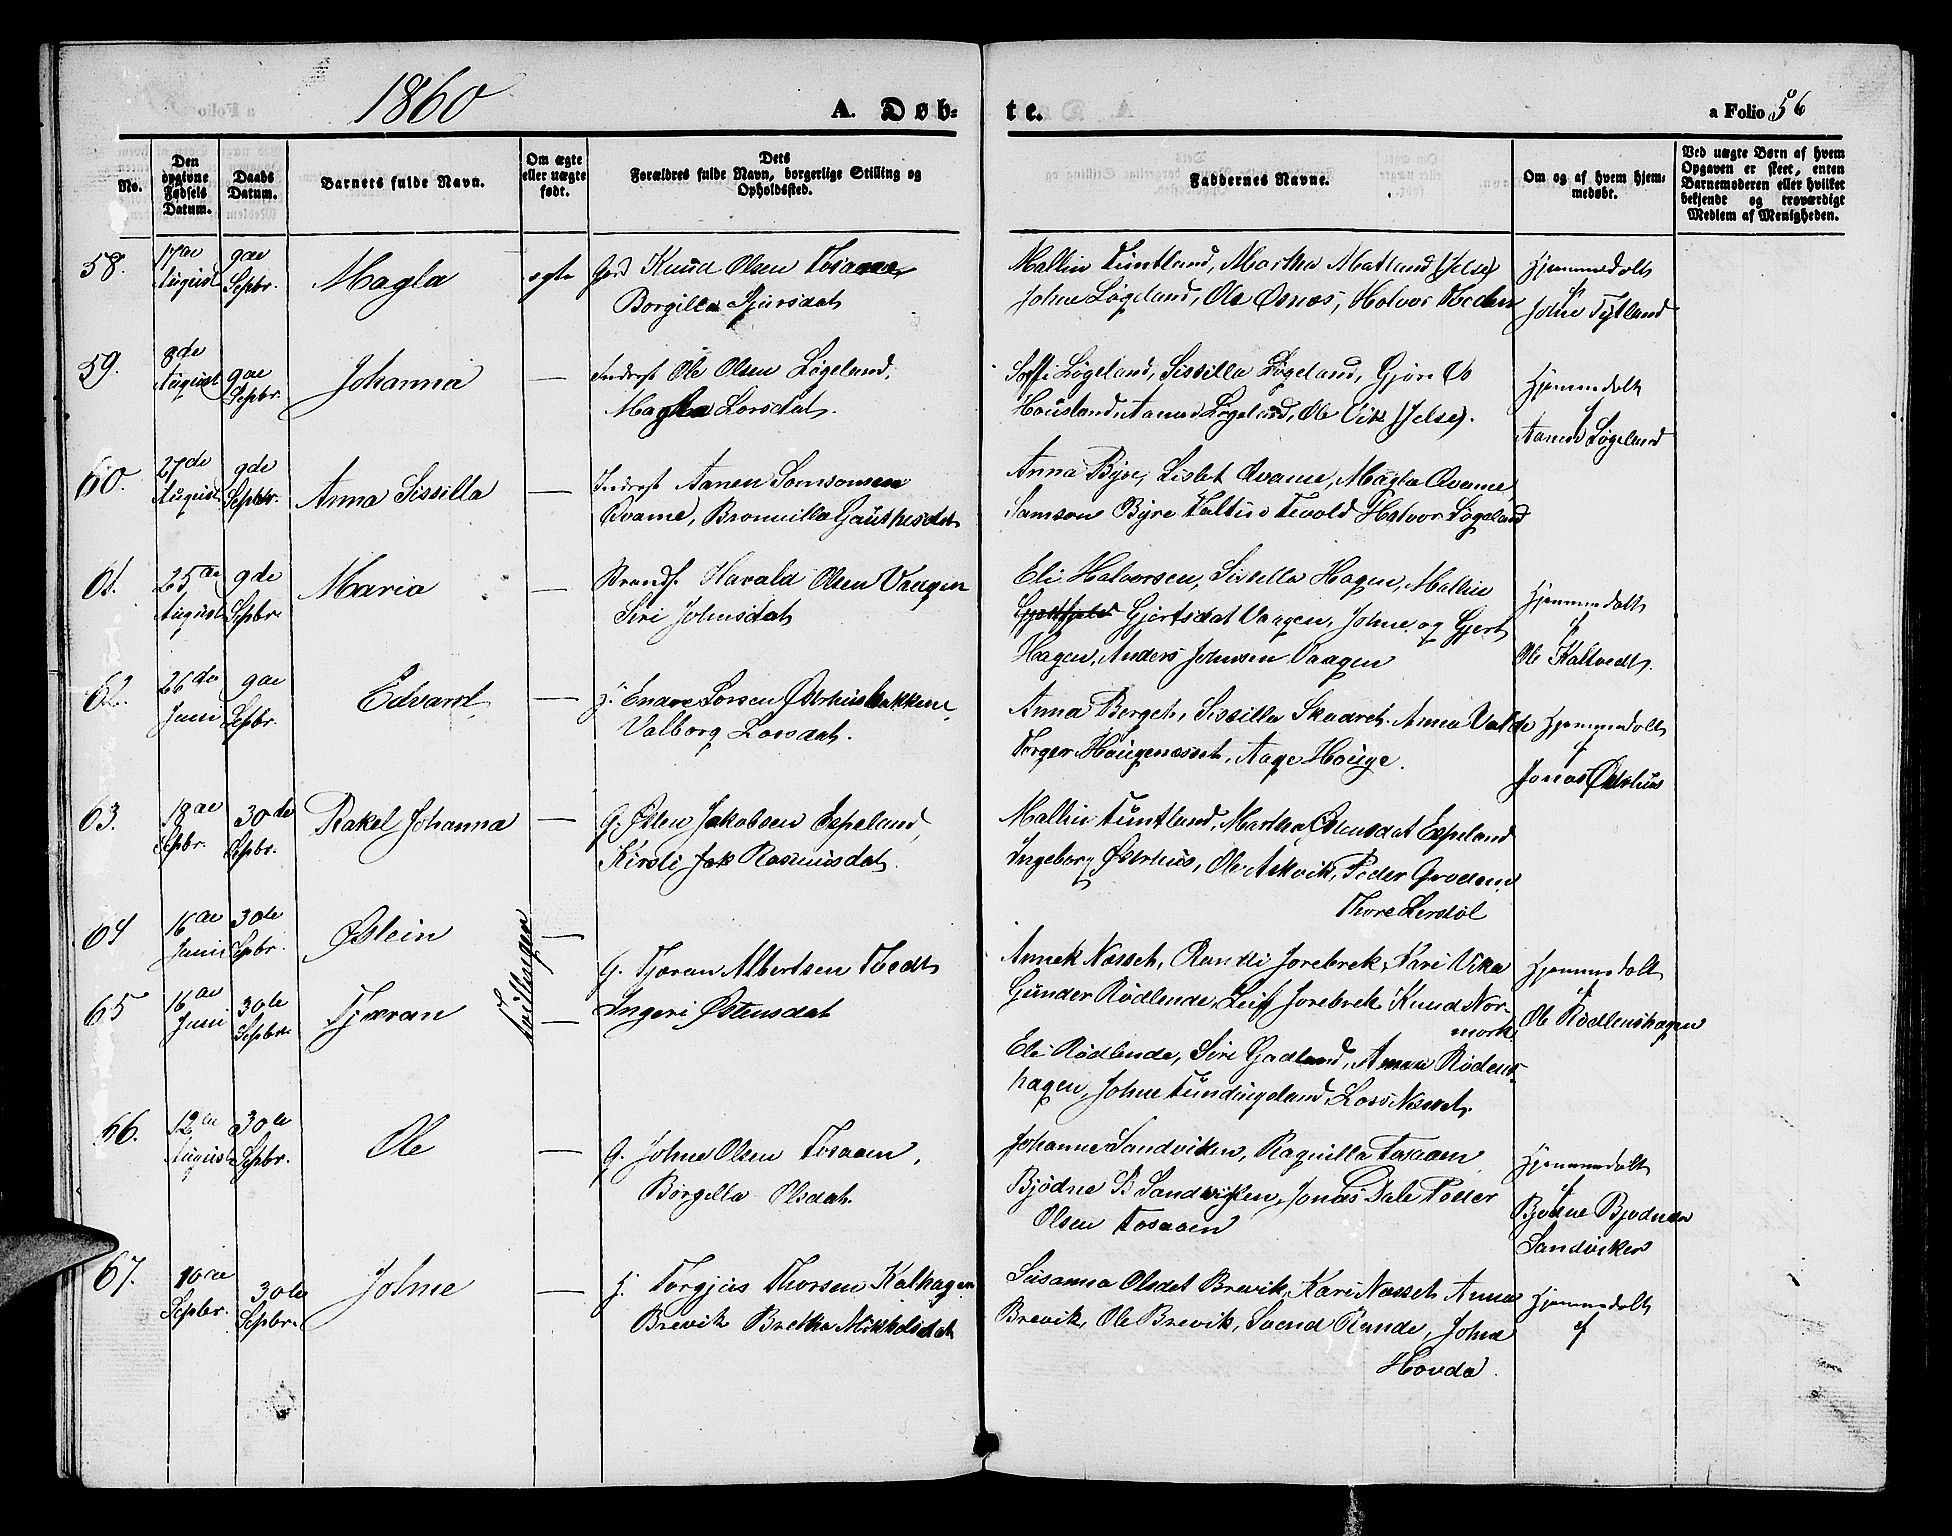 1860
A. Døb-
te.
a Folio 56
No.
Den opgivne Fødsels Datum.
Daabs Datum.
Barnets fulde Navn.
Om ægte eller uægte født.
Dets Forældres fulde Navn, borgerlige Stilling og Opholdssted.
Faddernes Navne.
Om og af hvem hjemmedøbt.
Ved uægte Børn af hvem Opgaven er skeet, enten Barnemoderen eller hvilket bekjendt og troværdigt Medlem af Menigheden.
58. 17de August 9de Septbr. Magla egte Knud Olsen Tosaaen
Borgilla
Mallin Tuntland, Martha Matland (Jelse)
Johne Løgeland, Ole Osnes, Halvor
Hjemmedøbt
af
Johne Tytland
59. 8de August 9de Septbr. Johanna — Inderst Ole Olsen Løgeland,
Magla Larsdat.
Løgeland, Sissilla Løgeland,
Housland, Aanen Løgeland, Ole Vik (Jelse).
Hjemmedøbt
af
Aanen Løgeland
60. 27de August 9de Septbr. Anna Sissilla — Inderst Aanen Samsonsen
Qvame, Bronnilla
Anna Byre, Lisbet Qvame, Magla Qvame,
Samson Byre Tevold Halvor Løgeland
61. 25de August 9de Septbr. Maria — Harald Olsen Vaagen
Siri Johnsdat
Eli Halvorsen, Sissilla Hagen, Mallin
Gjertsdat Vaagen, Johne og Gjert
Hagen, Anders Johnsen Vaagen
Hjemmedøbt
af
Ole Kaltvedt.
62. 26de Juni 9de Septbr. Edvard — g. Enare Larsen Østerhusbakken,
Valborg Larsdat.
Anna Berget, Sissilla Skaaret, Anna Valde
Torger Haugenæsset, Aage Houge.
Hjemmedøbt
af
Jonas Østerhus
63. 18de Septbr. 30de Septbr. Rakel Johanna — g. Østen Jakobsen Espeland,
Kirsti Rasmusdat.
Mallin Tuntland, Martha Østensdat Espeland
Ingeborg Østerhus, Ole Askvik, Peder
Thore
64 16de Juni 30de Septbr. Østein —
Tvillinger
65 16de Juni 30de Septbr. Tjæran —
g. Tjæran Albertsen Tvedt
Ingeri Østensdat
Annek Næsset, Randi Jorebrek, Kari Vika
Gunder Rødlende, Leif Jorebrek Knud Nor-
mork
Eli Rødlende, Siri Gadland, Rødens-
hagen, Johne Tundingeland, Lars Næsset.
Hjemmedøbt
af
Ole Rødlenshagen
66. 12de August 30de Septbr. Ole — g. Johne Olsen Tosaaen,
Børgilla Olsdat.
Johanne Sandviken, Ragnilla Tosaaen
Bjødne B Sandviken, Jonas Dale Peder
Olsen Tosaaen
Hjemmedøbt
af
Bjødne Bjødnsen
Sandviken
67. 10de Septbr. 30de Septbr. Johne — g. Torgjus Thorsen Kalhagen
Brevik Bretha Mikkelsdat
Susanna Olsdat Brevik, Kari Næsset, Anna
Brevik, Ole Brevik, Svend Rande, Johne
Hovda.
Hjemmedøbt
af